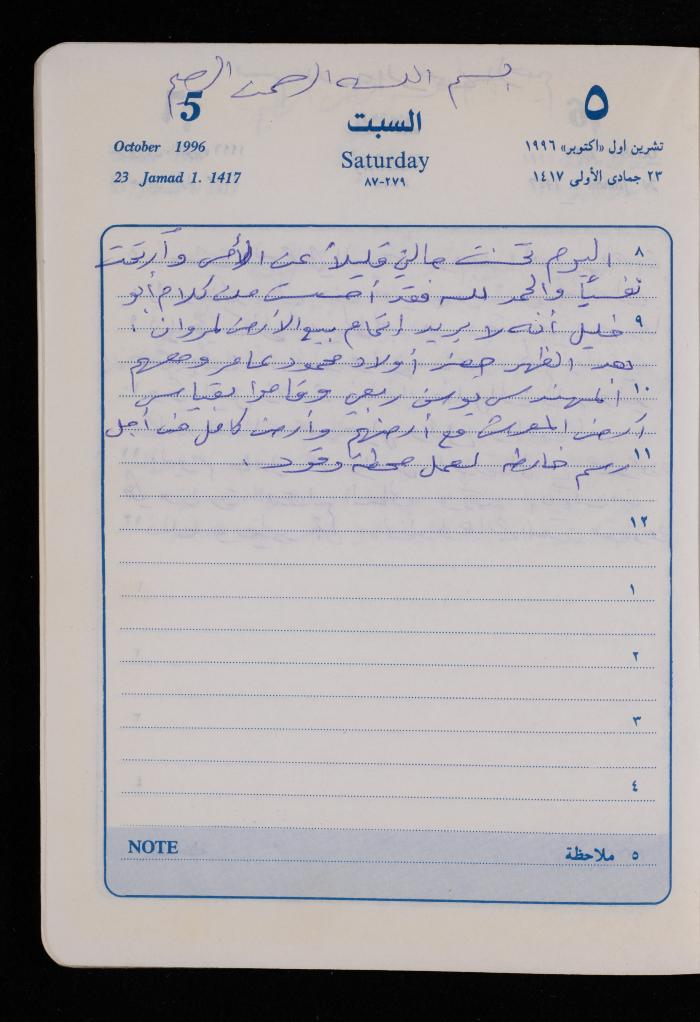 بسم الله الرحمن الرحيم
5
October 1996
23 Jamad 1. 1417
السبت
Saturday
٢٧٩-٨٧
٥
تشرين اول «اكتوبر» ١٩٩٦
٢٣ جمادى الأولى ١٤١٧
٨ اليوم تحسنت حالتي قليلاً عن الأمس وارتحت
نفسياً والحمد لله فقد أحسست من كلام أبو
٩ خليل أنه لا يريد إتمام بيع الأرض لمروان .
بعد الظهر حضر أولاد محمود عامر ومعهم
١٠ المهندس يوسف ربعي وقاموا بقياس
أرض المعرش مع أرضهم وأرض كامل من أجل
١١ رسم خارطة لعمل محطة وقود .
١٢
١
٢
٣
٤
NOTE
٥ ملاحظة